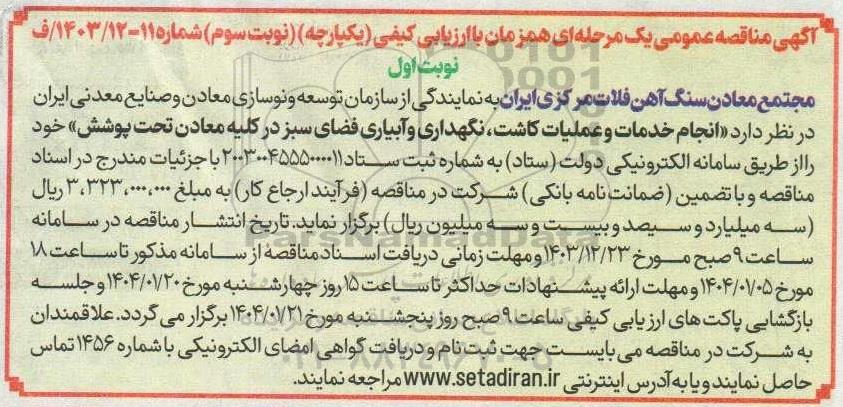 آگهی مناقصه عمومی یک مرحله ای همزمان با ارزیابی کیفی (یکپارچه) (نوبت سوم) شماره ۱۱-۱۴۰۳/۱۲/ف
نوبت اول
مجتمع معادن سنگ آهن فلات مرکزی ایران به نمایندگی از سازمان توسعه و نوسازی معادن و صنایع معدنی ایران
در نظر دارد «انجام خدمات و عملیات کاشت، نگهداری و آبیاری فضای سبز در کلیه معادن تحت پوشش» خود
را از طریق سامانه الکترونیکی دولت (ستاد) به شماره ثبت ستاد ۲۰۰۳۰۰۴۵۵۵۰۰۰۰۱۱ با جزئیات مندرج در اسناد
مناقصه و با تضمین (ضمانت نامه بانکی) شرکت در مناقصه (فرآیند ارجاع کار) به مبلغ ۳،۳۲۳،۰۰۰،۰۰۰ ریال
(سه میلیارد و سیصد و بیست و سه میلیون ریال) برگزار نماید. تاریخ انتشار مناقصه در سامانه
ساعت ۹ صبح مورخ ۱۴۰۳/۱۲/۲۳ و مهلت زمانی دریافت اسناد مناقصه از سامانه مذکور تا ساعت ۱۸
مورخ ۱۴۰۴/۰۱/۰۵ و مهلت ارائه پیشنهادات حداکثر تا ساعت ۱۵ روز چهارشنبه مورخ ۱۴۰۴/۰۱/۲۰ و جلسه
بازگشایی پاکت های ارزیابی کیفی ساعت ۹ صبح روز پنجشنبه مورخ ۱۴۰۴/۰۱/۲۱ برگزار می گردد. علاقمندان
به شرکت در مناقصه می بایست جهت ثبت نام و دریافت گواهی امضای الکترونیکی با شماره ۱۴۵۶ تماس
حاصل نمایند و یا به آدرس اینترنتی www.setadiran.ir مراجعه نمایند.